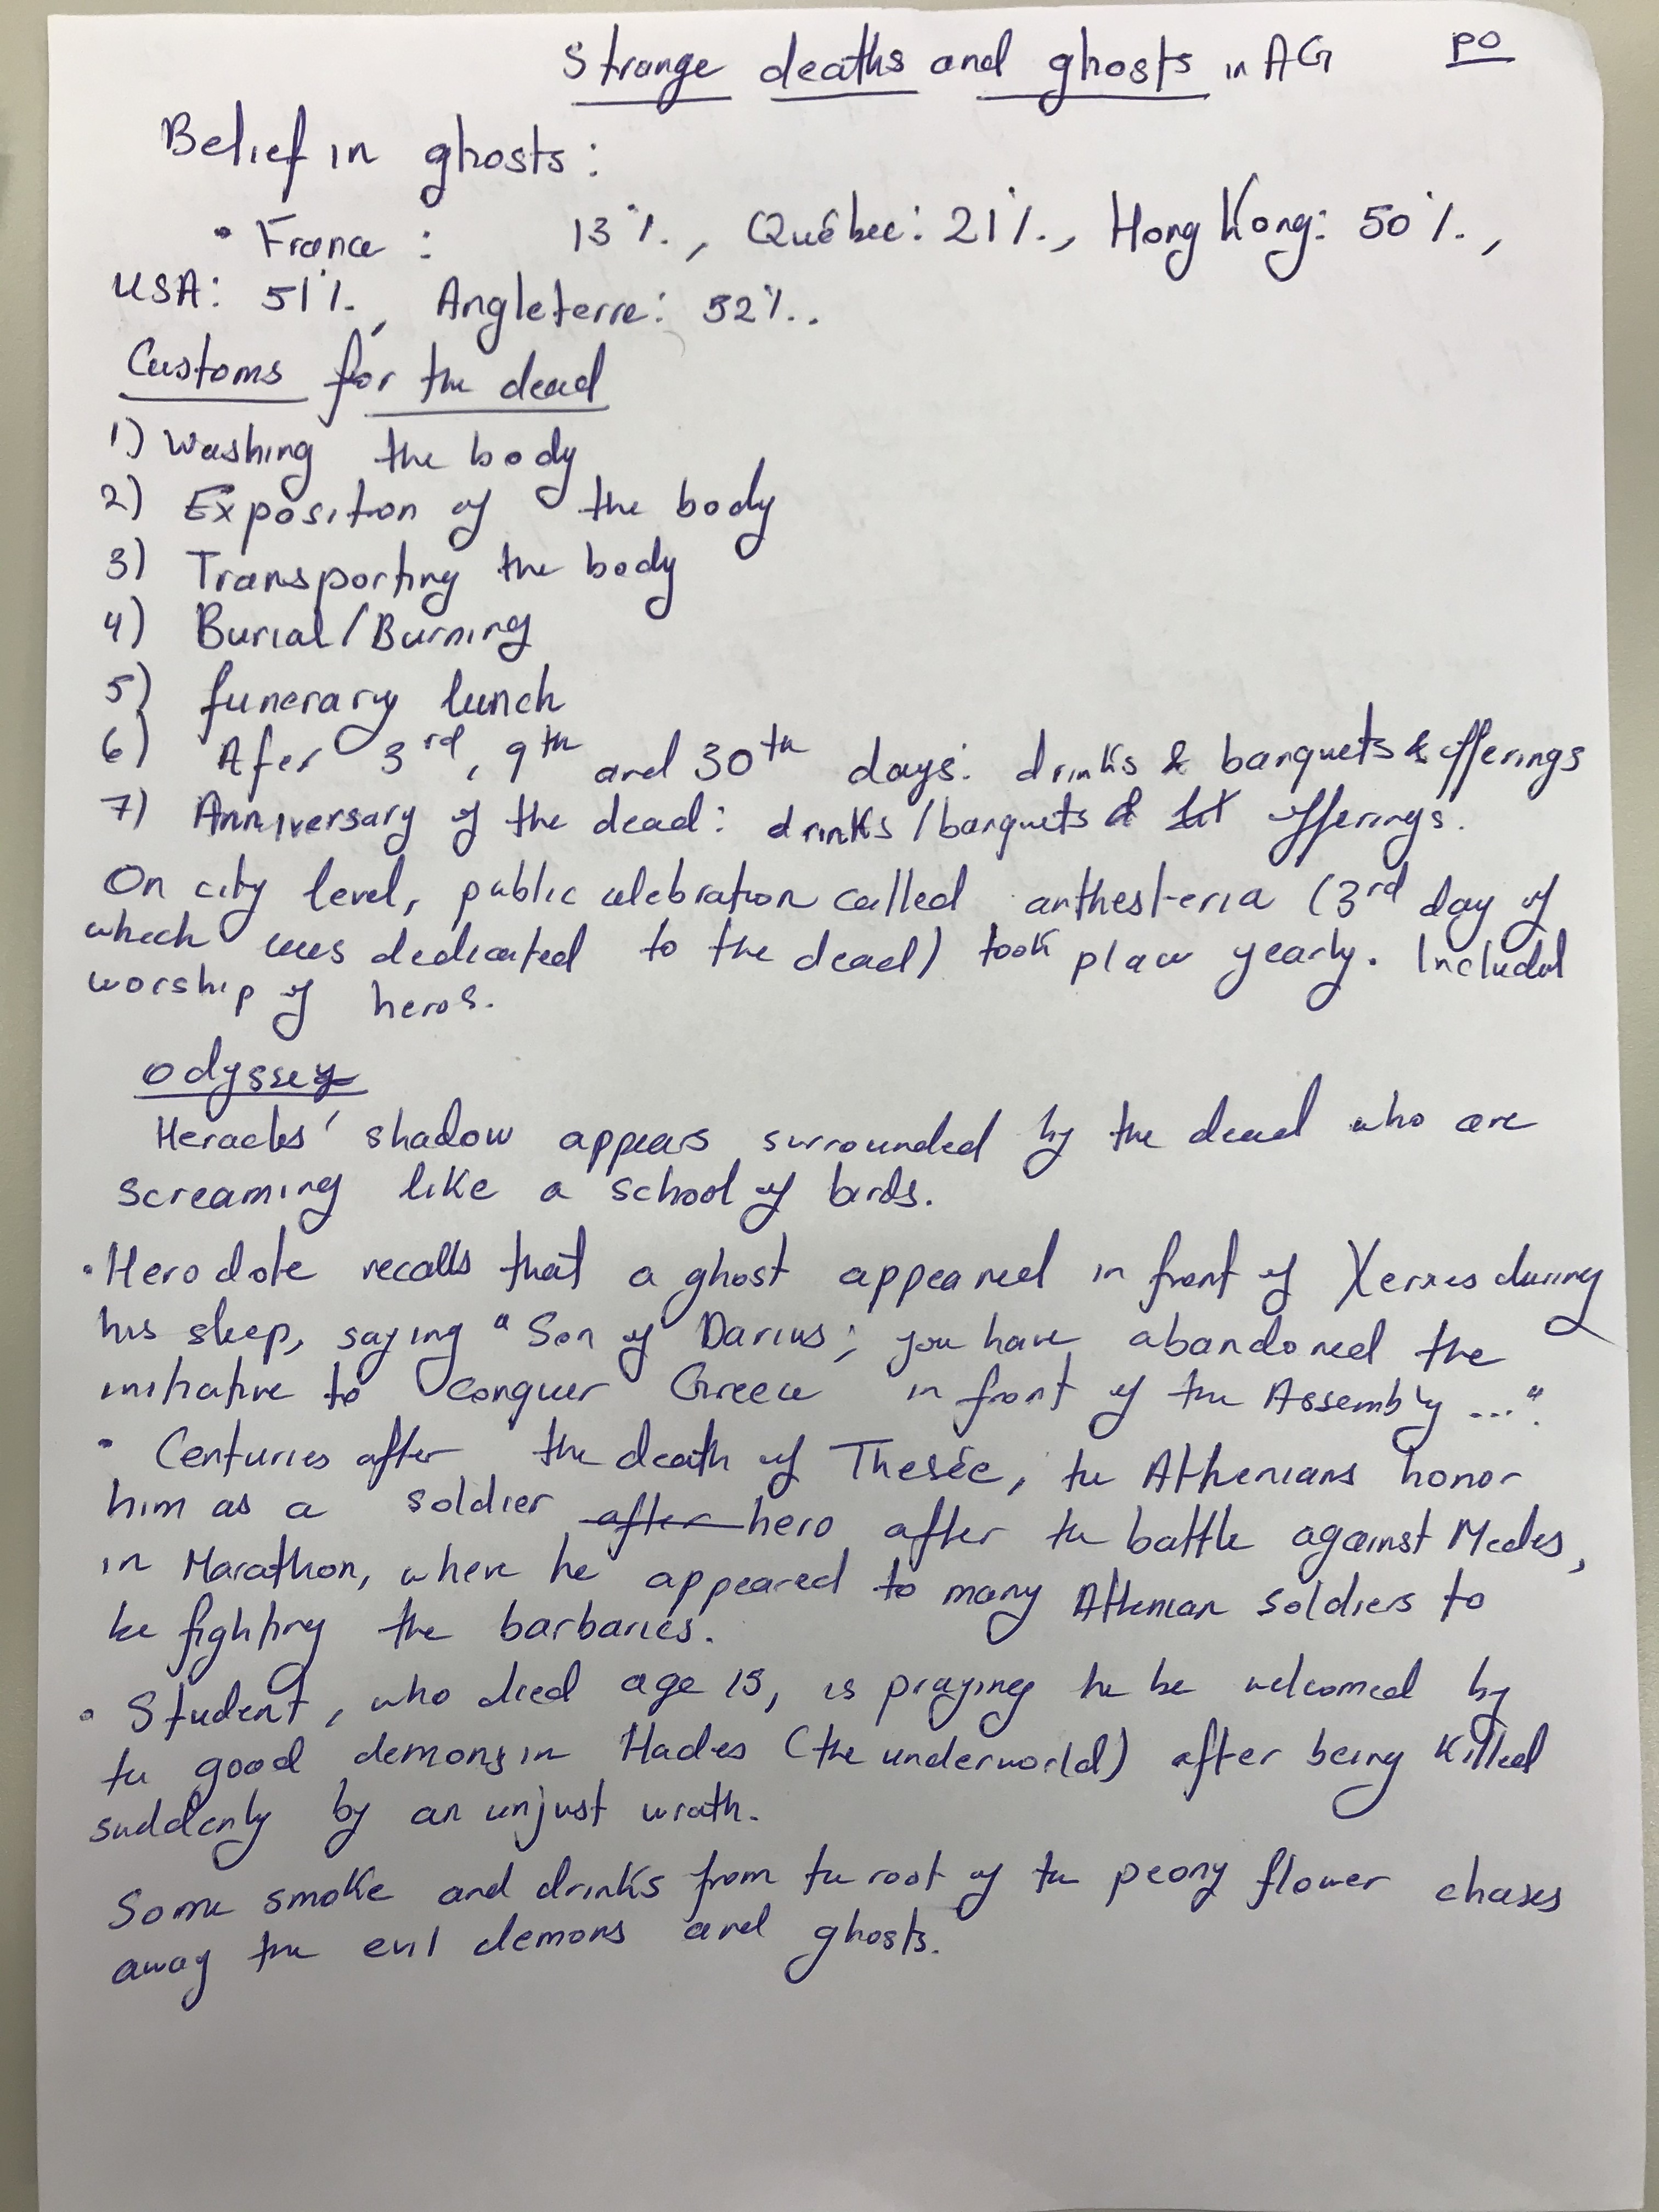 Strange deaths and ghosts in AG p0
Belief in ghosts:
• France : 13%, Québec: 21%, Hong Kong: 50%,
USA: 51%, Angleterre: 52%.
Customs for the dead
1) Washing the body
2) Exposition of the body
3) Transporting the body
4) Burial/Burning
5) funerary lunch
6) Afer 3rd, 9th and 30th days: drinks & banquets & offerings
7) Anniversary of the dead: drinks/banquets & offerings.
On city level, public celebration called anthesteria (3rd day of
which was dedicated to the dead) took place yearly. Included
worship of heros.
Odyssey
Heracles' shadow appears surrounded by the dead who are
screaming like a school of birds.
• Herodote recalls that a ghost appeared in front of Xerxes during
his sleep, saying "Son of Darius; you have abandoned the
initiative to conquer Greece in front of the Assembly ...".
• Centuries after the death of Thesée, the Athenians honor
him as a soldier after hero after the battle against Medes,
in Marathon, where he appeared to many Athenian soldiers to
be fighting the barbaries.
• Student, who died age 15, is praying he be welcomed by
the good demons in Hades (the underworld) after being killed
suddenly by an unjust wrath.
Some smoke and drinks from the root of the peony flower chases
away the evil demons and ghosts.